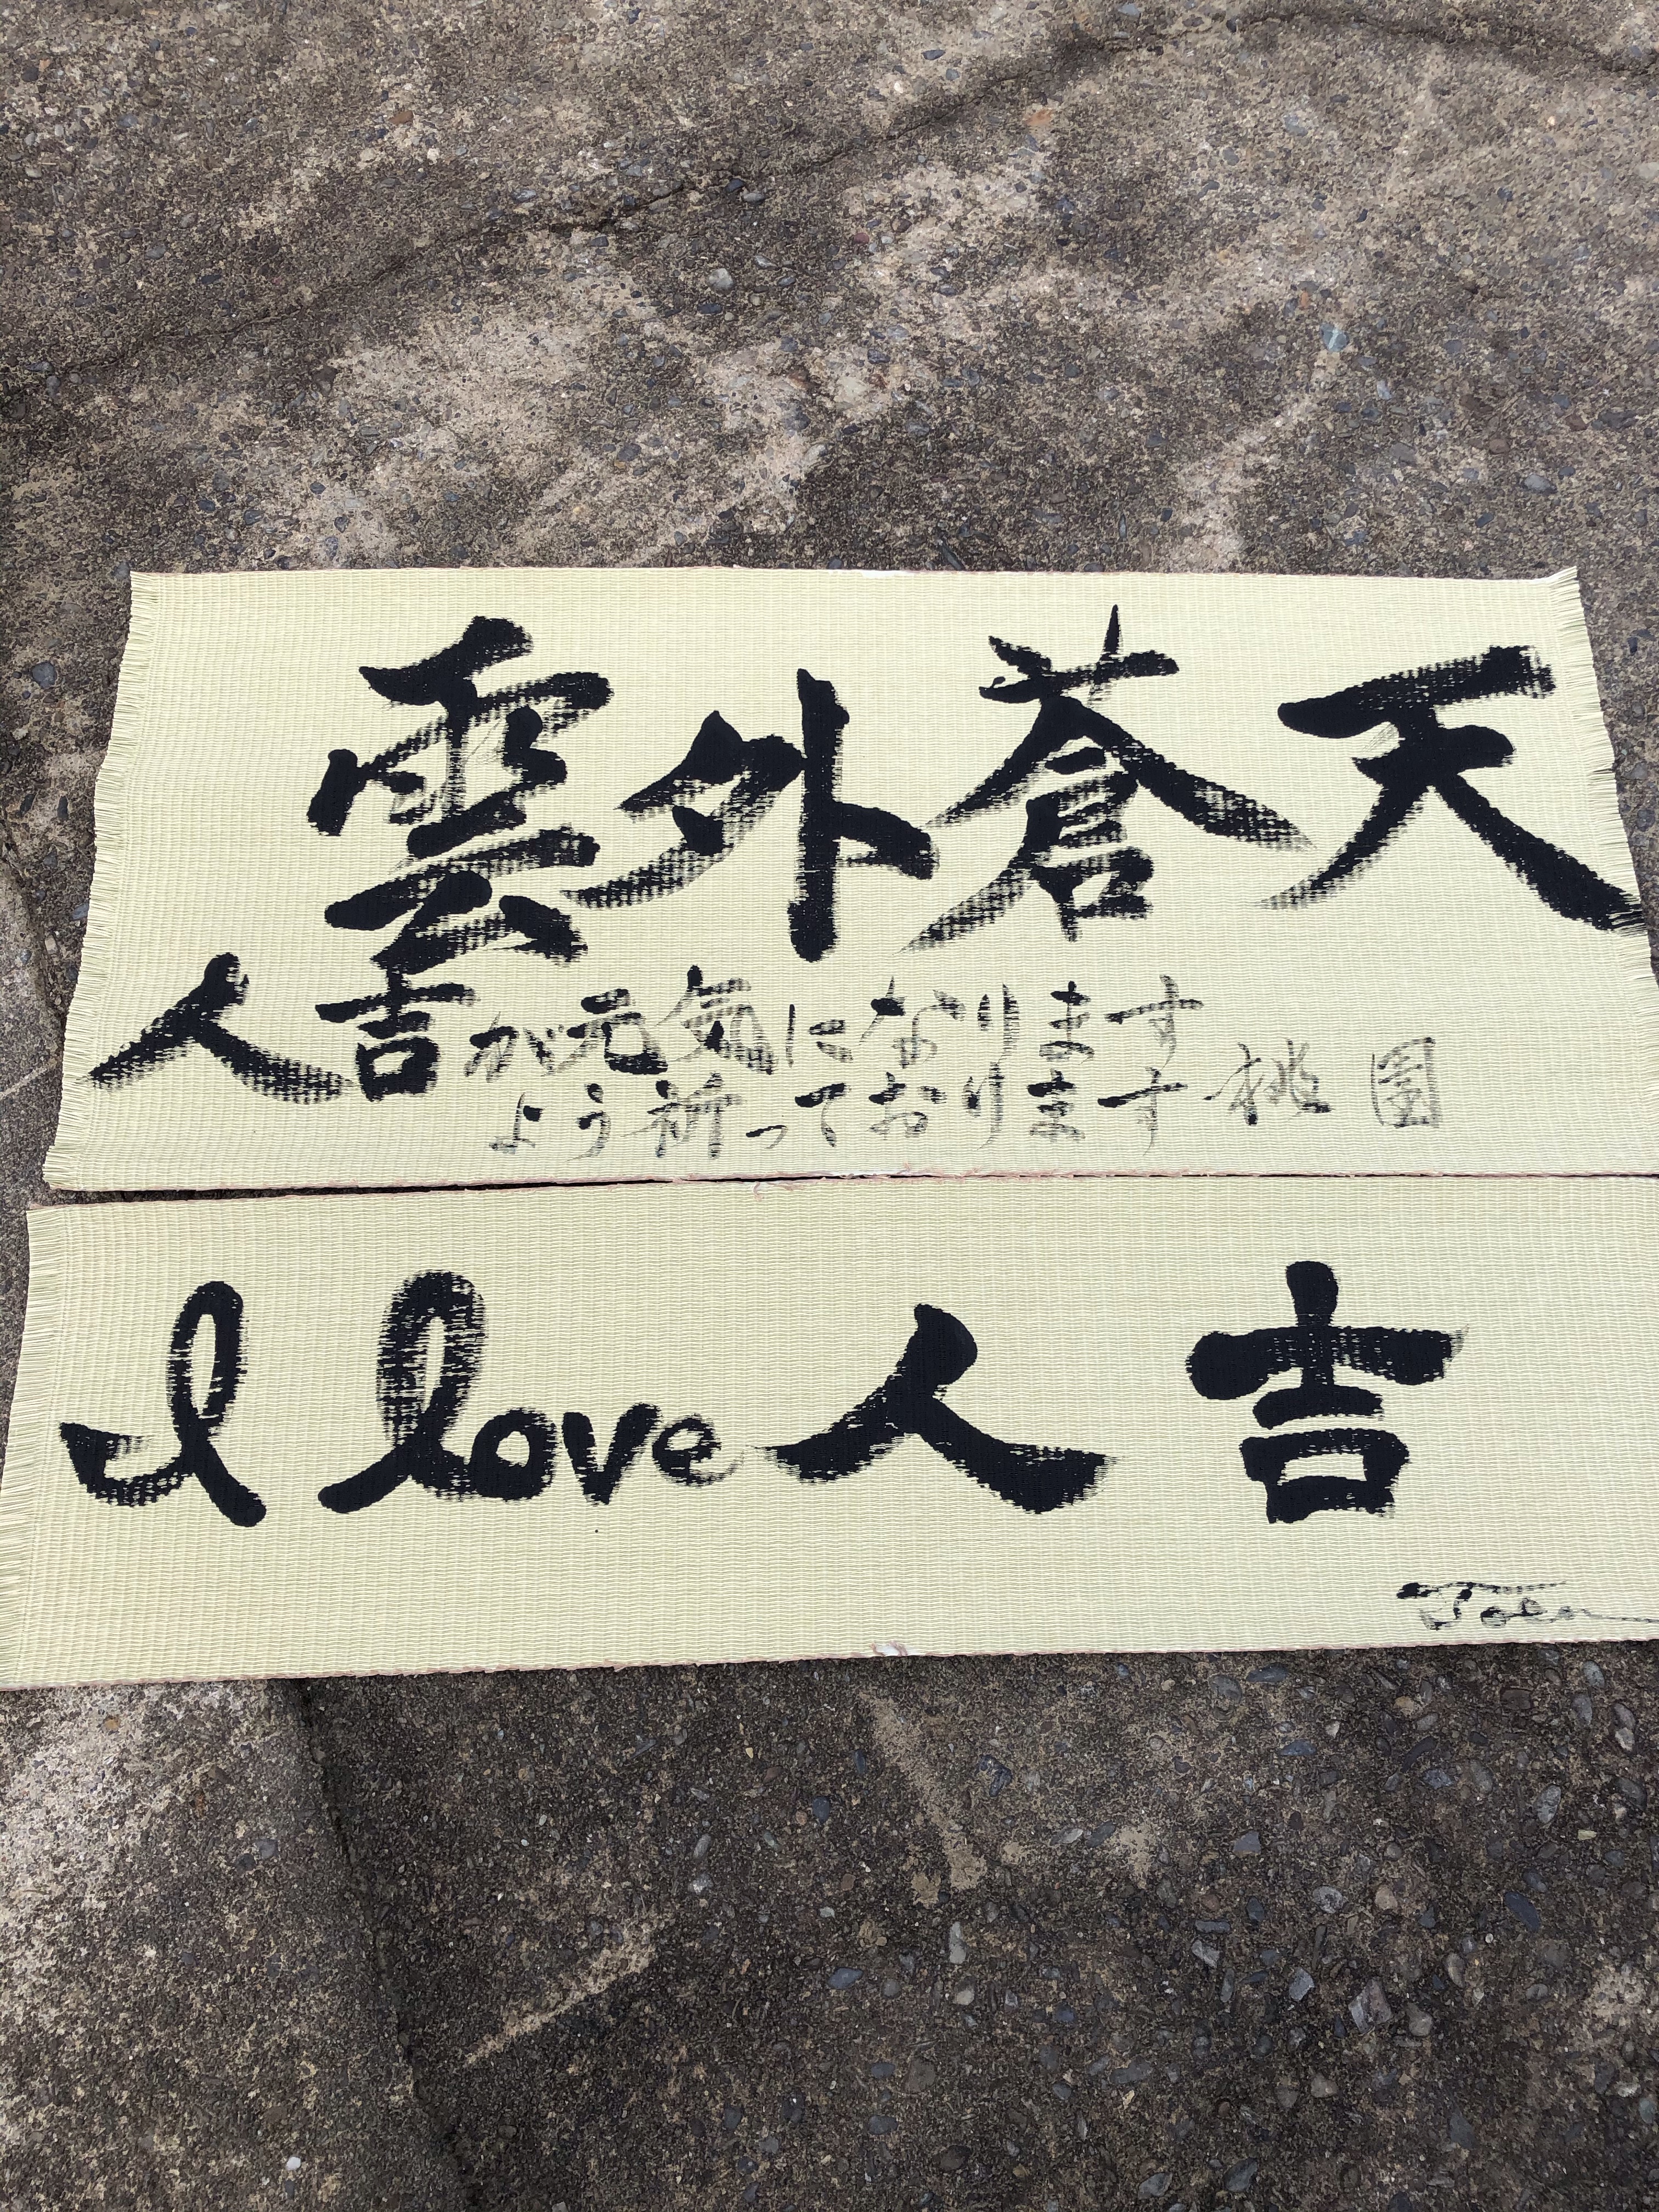 雲外蒼天
人吉が元気になります
よう祈っております 桃園
I love 人吉